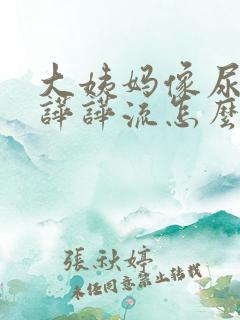 大姨妈像尿
譁譁流怎麼
張秋婷
未经同意禁止转载